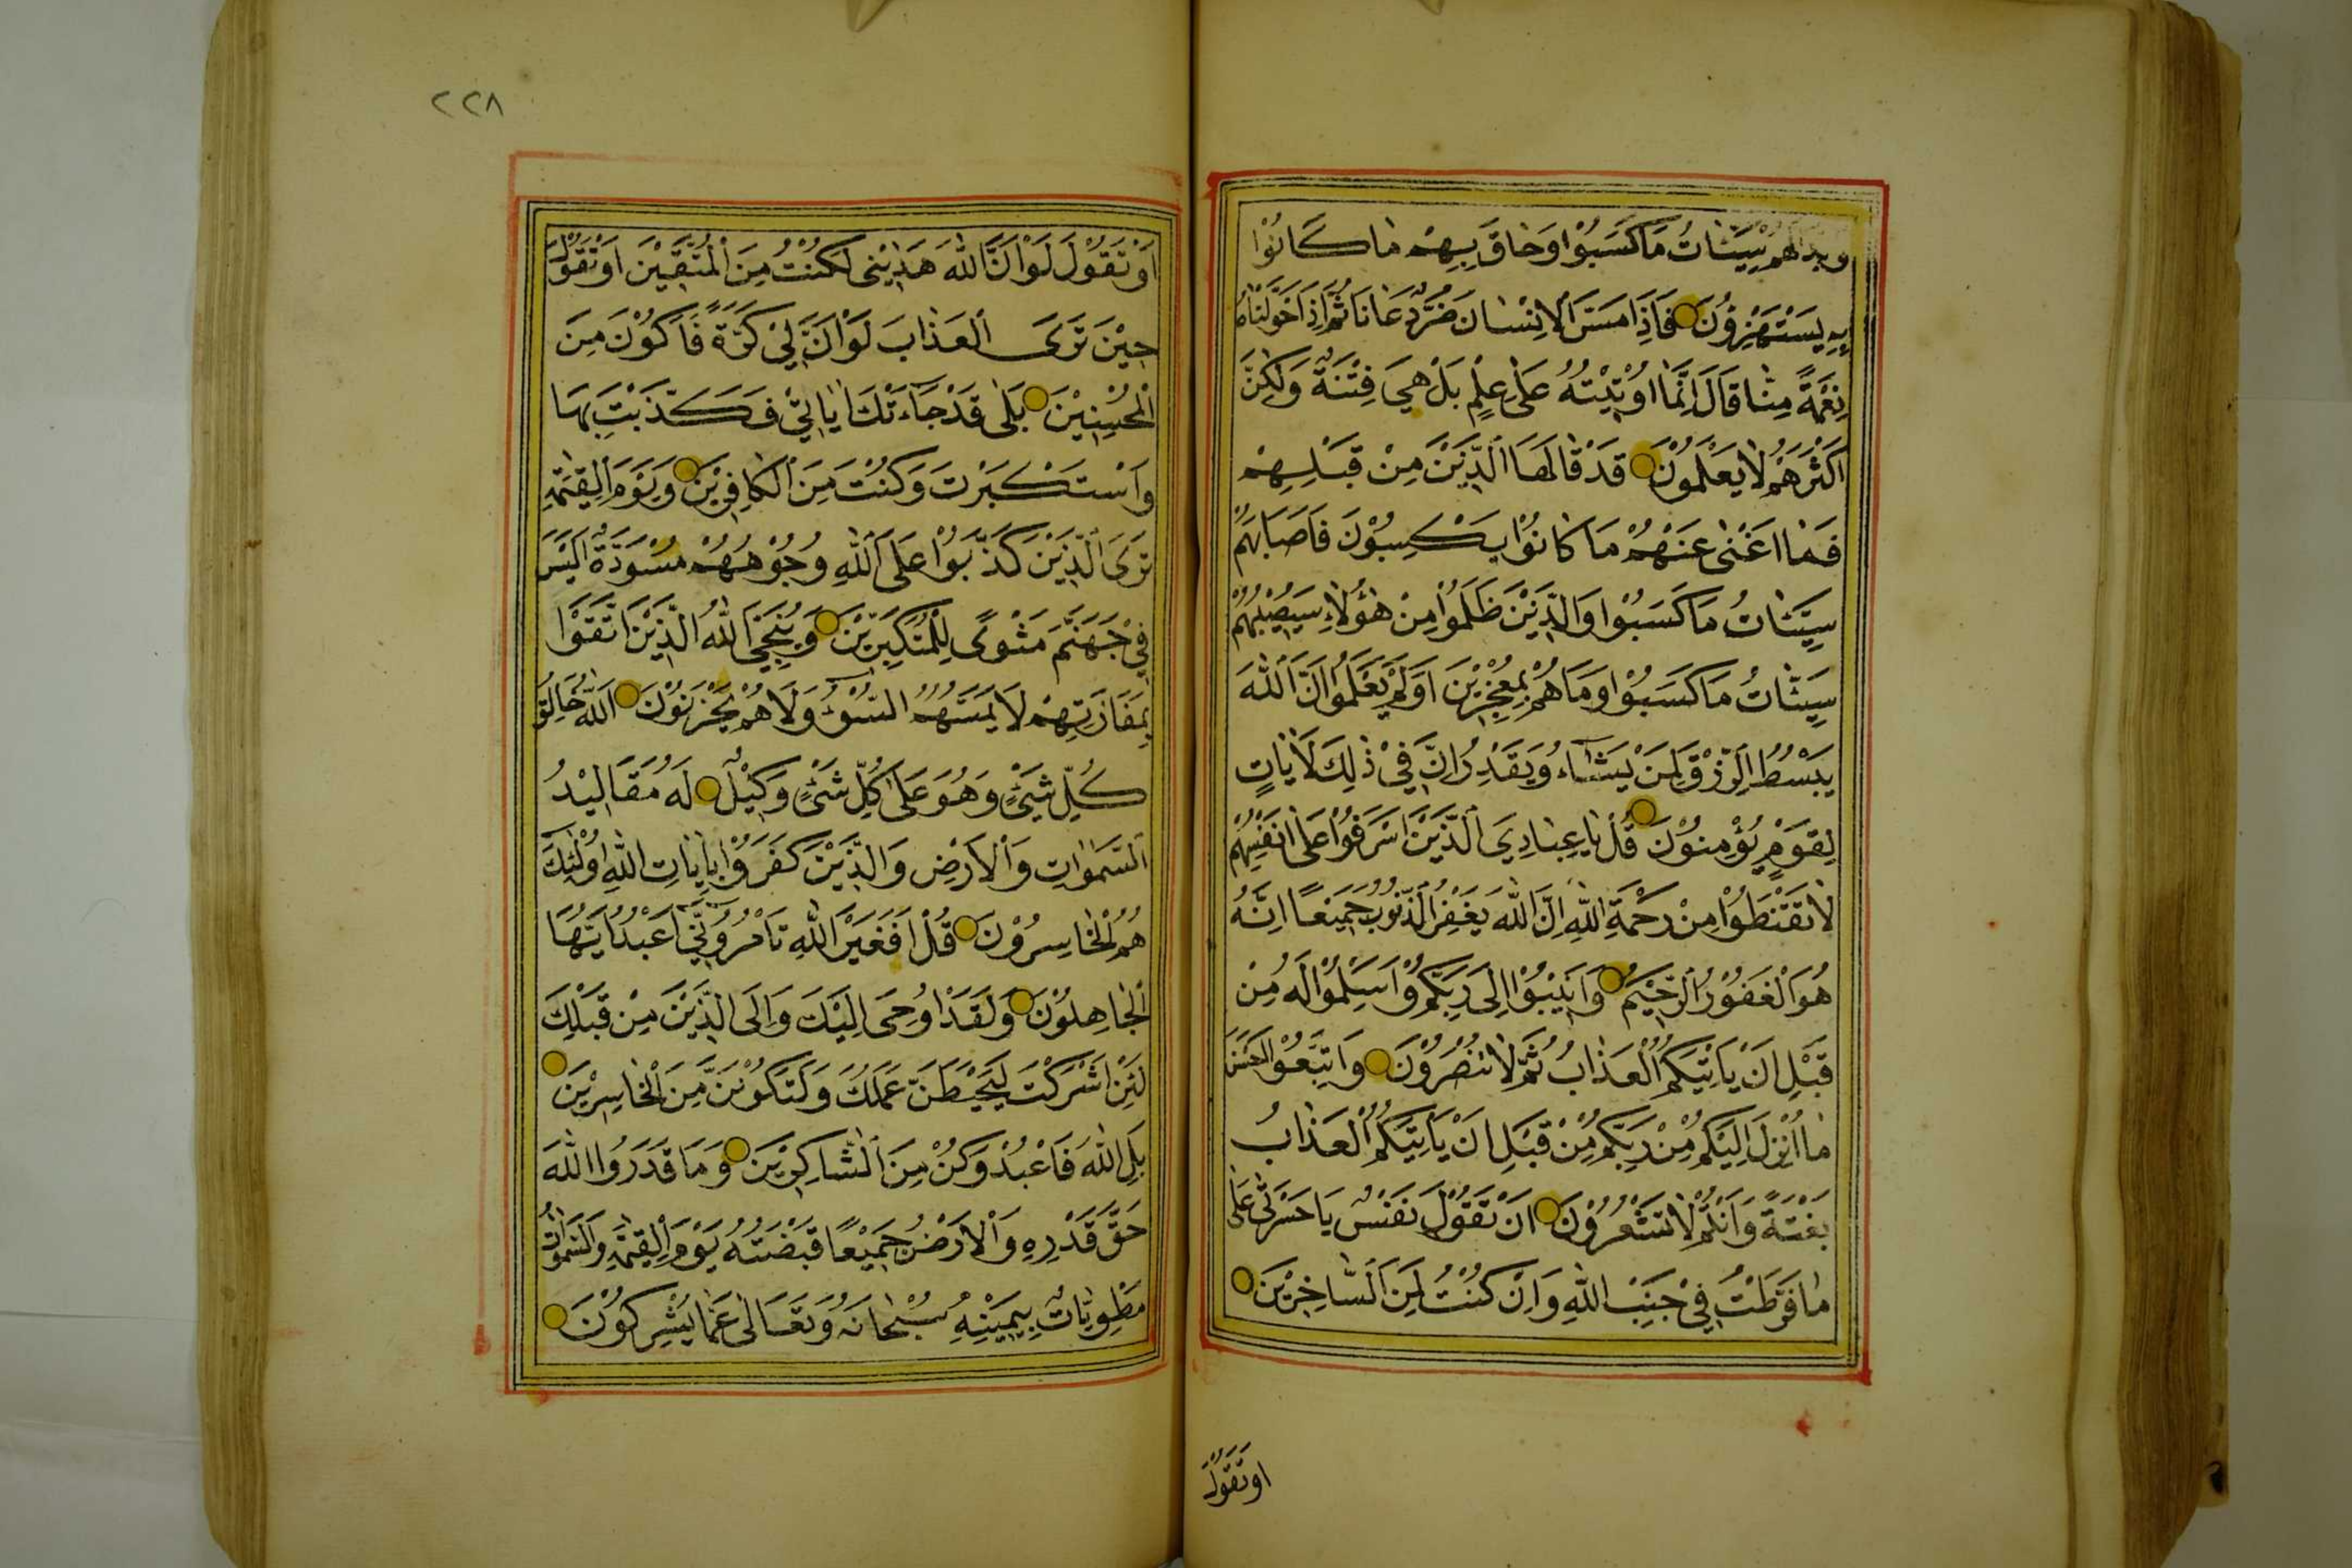 وبدا لهم سيئات ما كسبوا وحاق بهم ما كانوا
به يستهزؤن فاذا مس الانسان ضر دعانا ثم اذا خولناه
نعمة منا قال انما اوتيته على علم بل هي فتنة ولكن
اكثرهم لا يعلمون قد قالها الذين من قبلهم
فما اغنى عنهم ما كانوا يكسبون فاصابهم
سيئات ما كسبوا والذين ظلموا من هؤلاء سيصيبهم
سيئات ما كسبوا وما هم بمعجزين اولم يعلموا ان الله
يبسط الرزق لمن يشاء ويقدر ان في ذلك لايات
لقوم يؤمنون قل يا عبادي الذين اسرفوا على انفسهم
لا تقنطوا من رحمة الله ان الله يغفر الذنوب جميعا انه
هو الغفور الرحيم وانيبوا الى ربكم واسلموا له من
قبل ان ياتيكم العذاب ثم لا تنصرون واتبعوا احسن
ما انزل اليكم من ربكم من قبل ان ياتيكم العذاب
بغتة وانتم لا تشعرون ان تقول نفس يا حسرتى على
ما فرطت في جنب الله وان كنت لمن الساخرين
او تقول
٢٢٨
او تقول لو ان الله هديني لكنت من المتقين او تقول
حين ترى العذاب لو ان لي كرة فاكون من
المحسنين بلى قد جاءتك اياتي فكذبت بها
واستكبرت وكنت من الكافرين ويوم القيمة
ترى الذين كذبوا على الله وجوههم مسودة اليس
في جهنم مثوى للمتكبرين وينجي الله الذين اتقوا
بمفازتهم لا يمسهم السوء ولا هم يحزنون الله خالق
كل شئ وهو على كل شئ وكيل له مقاليد
السموات والارض والذين كفروا بايات الله اولئك
هم الخاسرون قل افغير الله تامروني اعبد ايها
الجاهلون ولقد اوحى اليك والى الذين من قبلك
لئن اشركت ليحبطن عملك ولتكونن من الخاسرين
بل الله فاعبد وكن من الشاكرين وما قدروا الله
حق قدره والارض جميعا قبضته يوم القيمة والسموات
مطويات بيمينه سبحانه وتعالى عما يشركون